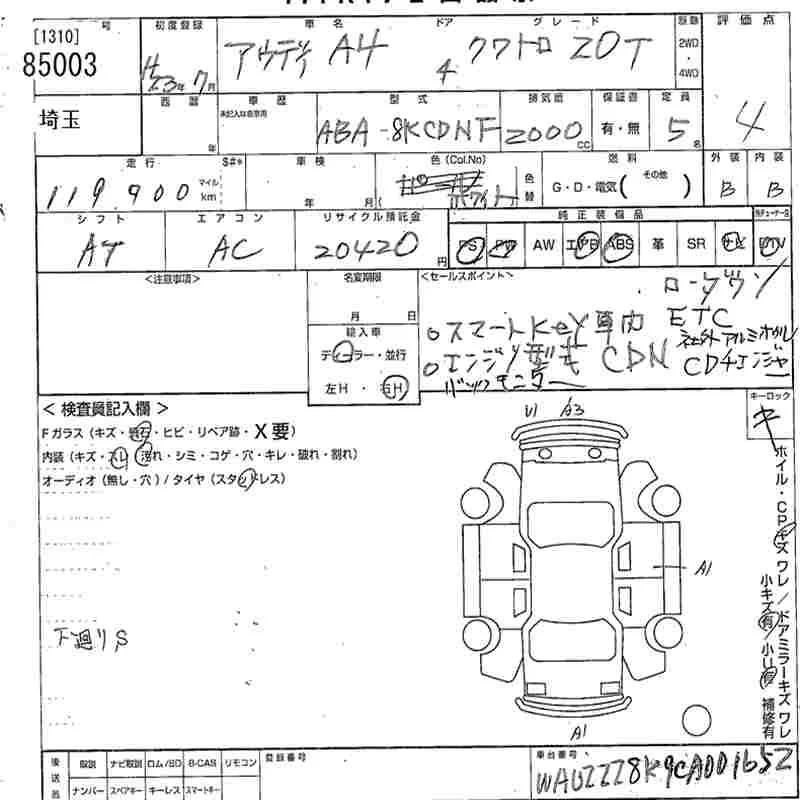 [1310]
号
85003
初度登録
車名
ドア
グレード
評価点
H23年7月
アウディ A4
4
クワトロ 2.0T
2WD
・
4WD
埼玉
西暦
年
車歴
未記入は自家用
型式
ABA-8KCDNF
排気量
2000
CC
保証書
有・無
定員
5
名
4
走行
119,900
マイル
km
S#*
車検
年 月(
色(Col.No)
ホワイト
色替
燃料
G・D・電気( その他 )
外装
B
内装
B
シフト
AT
エアコン
AC
リサイクル預託金
20420
円
純正装備品
PS PW AW エアB ABS 革 SR ナビ
TV
<注意事項>
名変期限
月 日
輸入車
ディーラー・並行
左H・右H
<セールスポイント>
ローダウン
○スマートKey車内 ETC
社外アルミホイル
CDN
CDチェンジャー
バックモニター
< 検査員記入欄 >
Fガラス(キズ・飛石・ヒビ・リペア跡・X要)
内装(キズ・スレ・汚れ・シミ・コゲ・穴・キレ・破れ・割れ)
オーディオ(無し・穴)/タイヤ(スタッドレス)
下廻りS
U1 A3
A1
A1
キーロック
キ
ホイル・CPキズ ワレ/ドアミラーキズ ワレ
小キズ有/小U有 補修有
後送品
取説 ナビ取説 ロム/SD B-CAS リモコン
ナンバー スペアキー キーレス スマートキー
登録番号
車台番号
WAUZZZ8K9CA001652